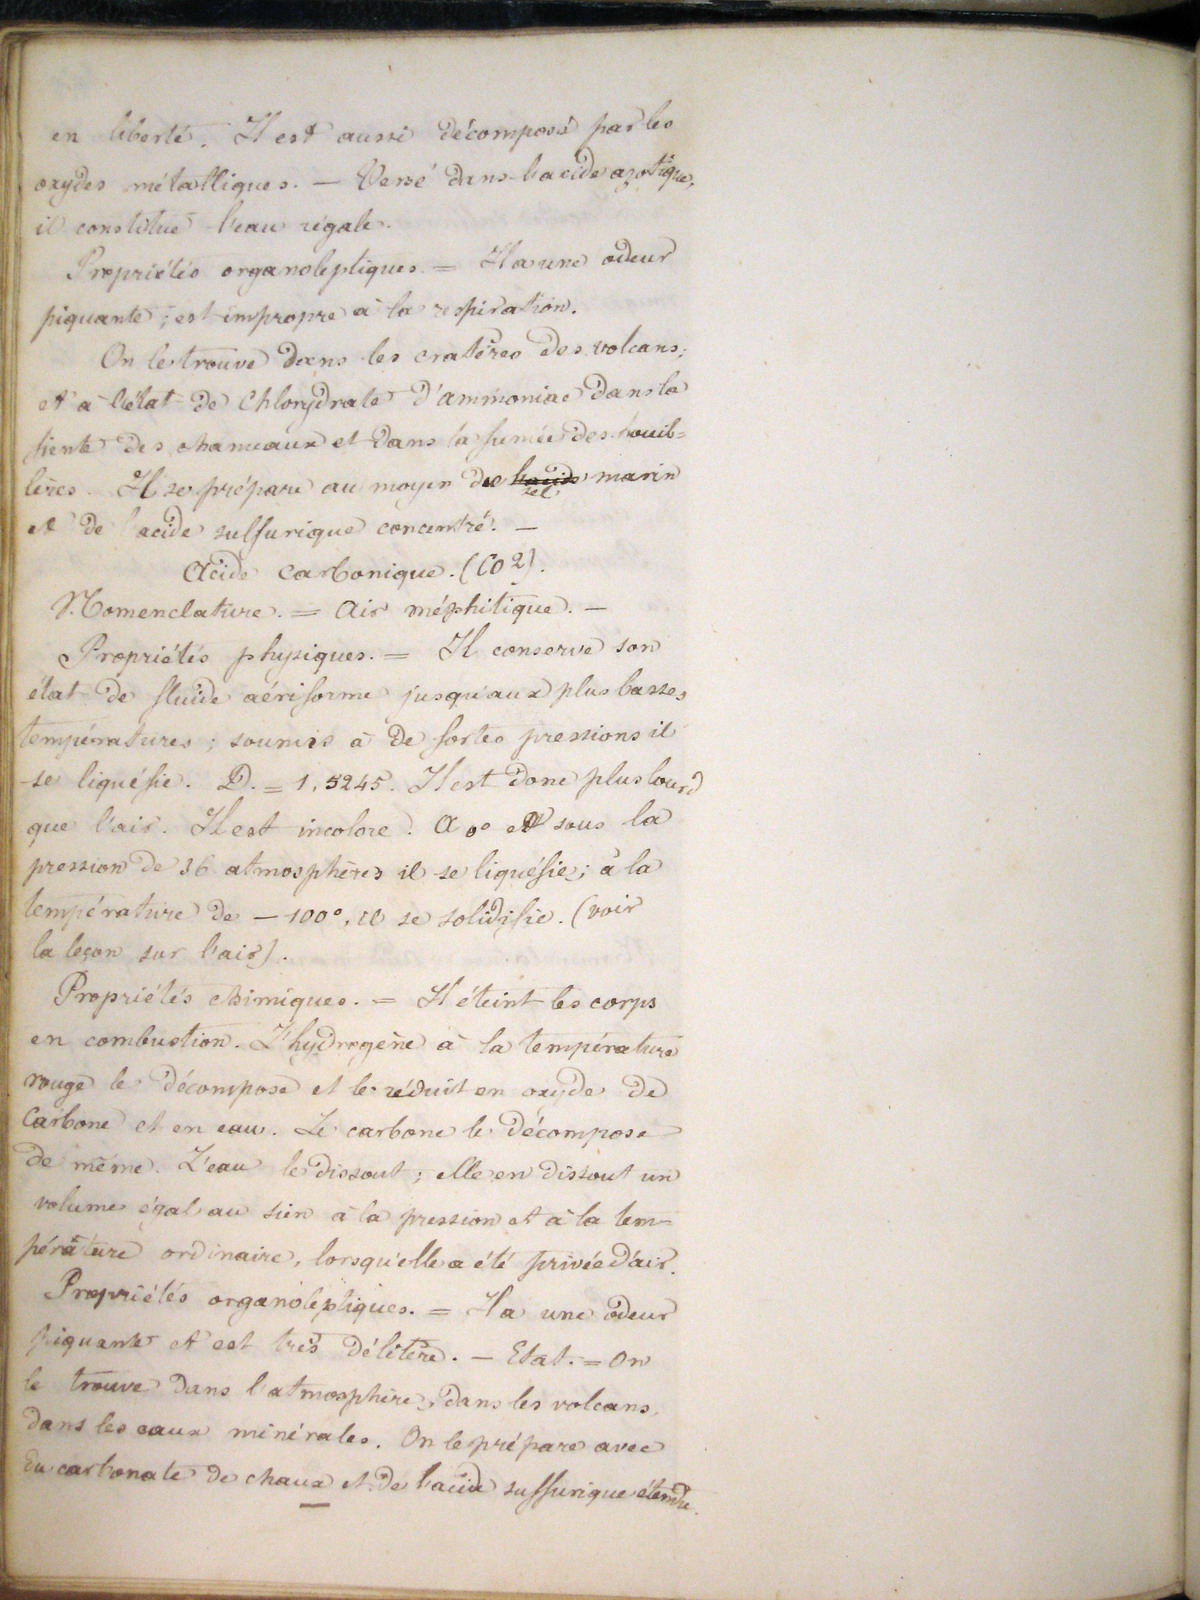 en liberté. Il est aussi décomposé par les
oxydes métalliques. — Versé dans l'acide azotique,
il constitue l'eau régale.
Propriétés organoleptiques = Il a une odeur
piquante ; est impropre à la respiration.
On le trouve dans les cratères des volcans;
et à l'état de Chlorydrate d'ammoniac dans la
fiente des chameaux et dans la fumée des houil=
lères. Il se prépare au moyen de sel marin
et de l'acide sulfurique concentré. —
Acide carbonique. (CO2).
Nomenclature. = Air méphitique. —
Propriétés physiques. = Il conserve son
état de fluide aériforme jusqu'aux plus basses
températures ; soumis à de fortes pressions il
se liquéfie. D. = 1,5245. Il est donc plus lourd
que l'air. Il est incolore. A 0° et sous la
pression de 36 atmosphères il se liquéfie; à la
température de — 100°, il se solidifie. (voir
la leçon sur l'air).
Propriétés chimiques. = Il éteint les corps
en combustion. L'hydrogène à la température
rouge le décompose et le réduit en oxyde de
Carbone et en eau. Le carbone le décompose
de même. L'eau le dissout ; elle en dissout un
volume égal au sien à la pression et à la tem=
pérature ordinaire, lorsqu'elle a été privée d'air.
Propriétés organoleptiques. = Il a une odeur
piquante et est très délétère. — Etat. = On
le trouve dans l'atmosphère, dans les volcans,
dans les eaux minérales. On le prépare avec
du carbonate de chaux et de l'acide sulfurique étendu.